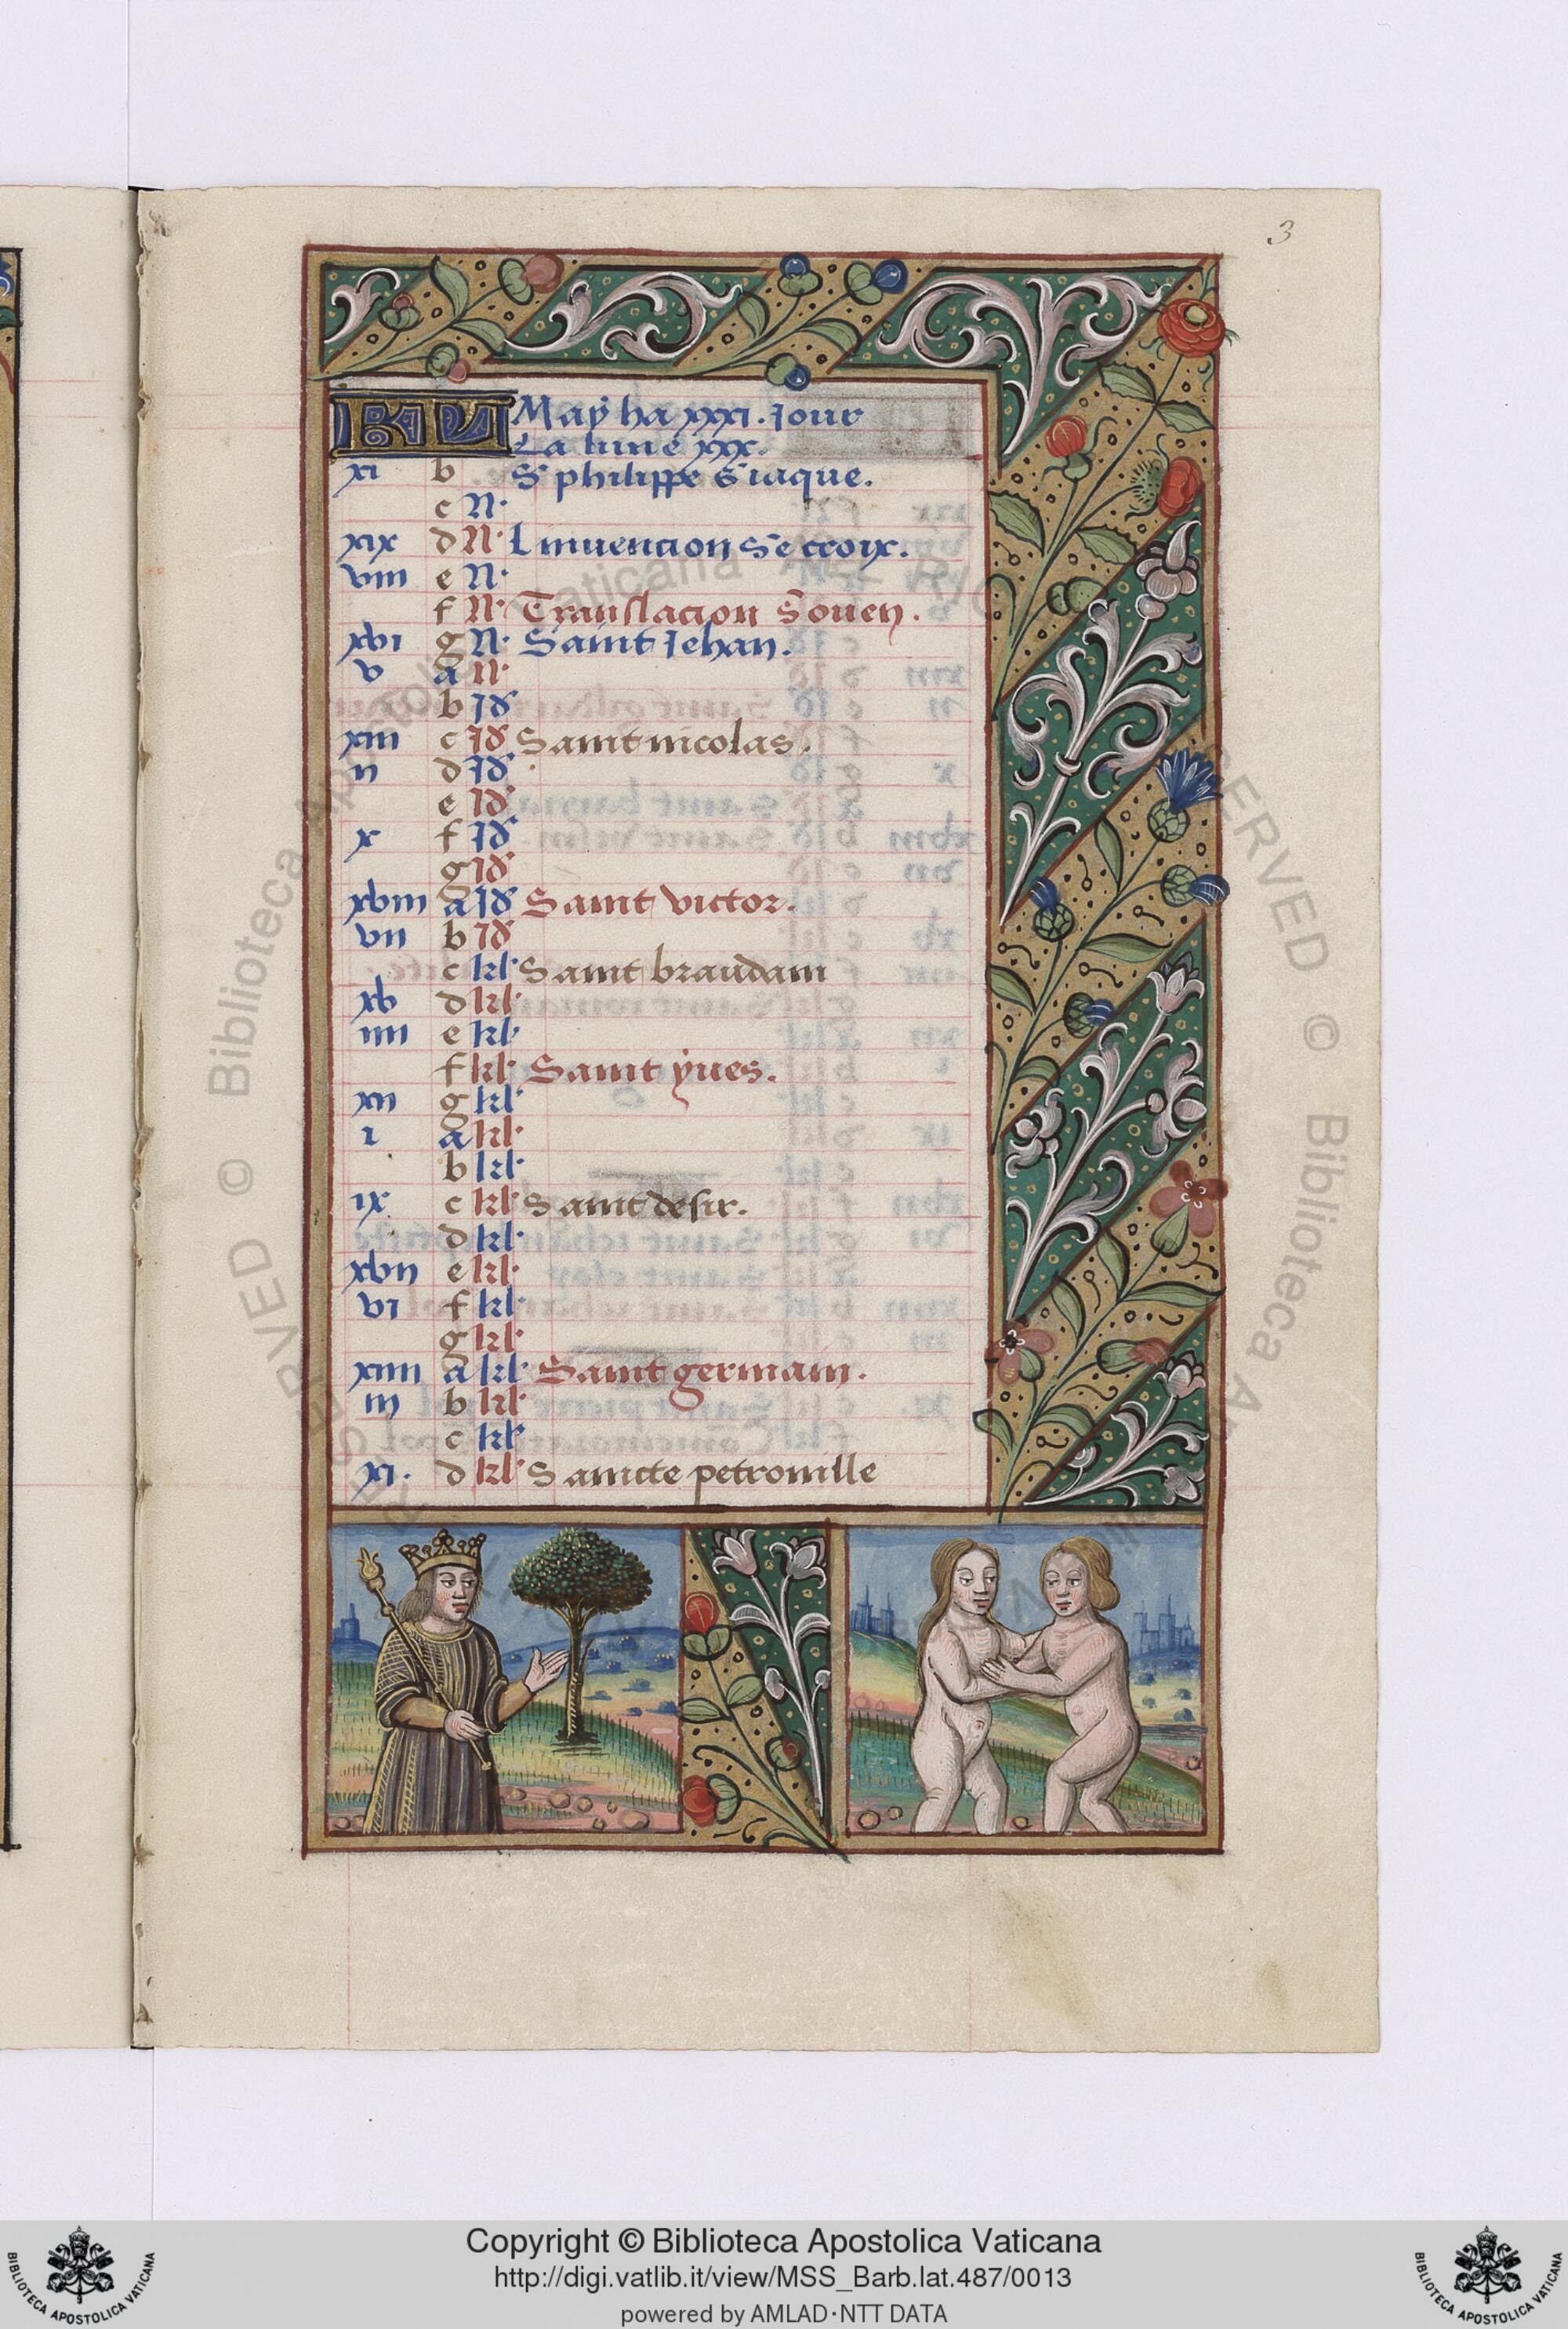 3
KL May ha xxxi. Jour
La lune xxx.
xi b S philippe S iaque.
c N.
xix d N. L invencion Se croix.
viii e N.
f N. Translacion S ouen.
xvi g N. Saint Jehan.
v a N.
b Id
xiii c Id Saint nicolas.
ii d Id
e Id
x f Id
g Id
xviii a Id Saint victor.
vii b Id
c kl Saint braudam
xv d kl
iiii e kl
f kl Saint yves.
xii g kl
i a kl
b kl
ix c kl Saint desir.
d kl
xvii e kl
vi f kl
g kl
xiiii a kl Saint germain.
iii b kl
c kl
xi. d kl Saincte petronille
Copyright © Biblioteca Apostolica Vaticana
http://digi.vatlib.it/view/MSS_Barb.lat.487/0013
powered by AMLAD·NTT DATA
BIBLIOTECA APOSTOLICA VATICANA
BIBLIOTECA APOSTOLICA VATICANA